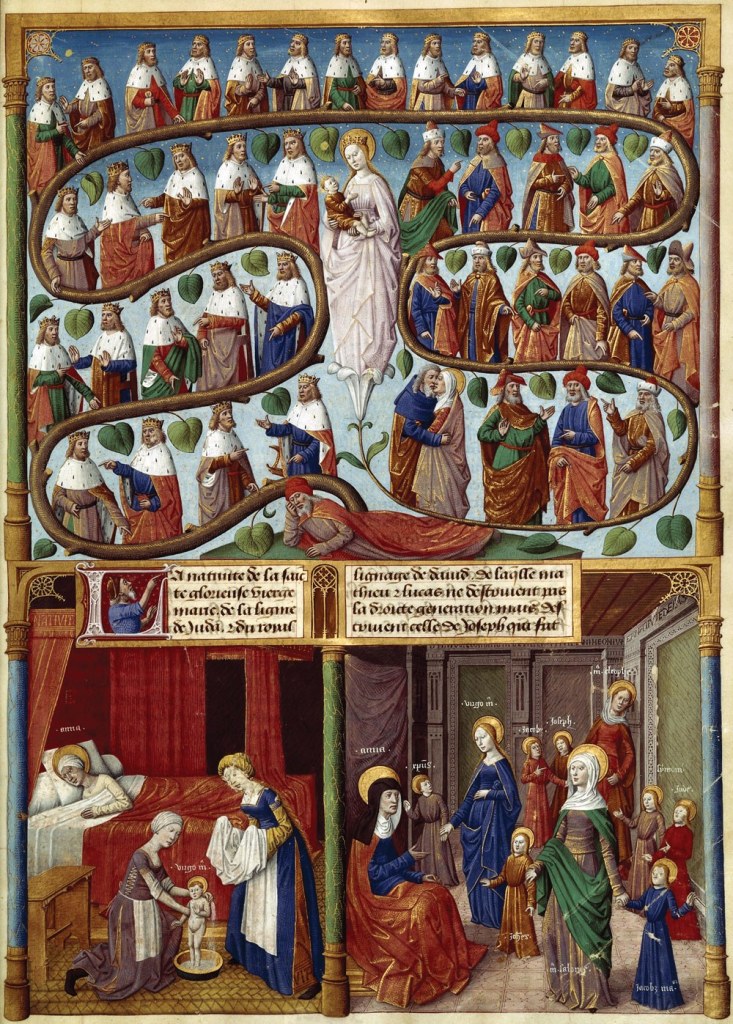 La natiuite de la sain
te glorieuse vierge
marie, de la ligne
de Juda, & du roial
lignage de dauid, de laq̃lle ma
thieu & lucas ne descriuent pas
la droicte generation mais des
criuent celle de Joseph qui fut
anna
virgo m̃
anna
xp̃us
virgo m̃
Joseph
symon
Jude
joh̃es